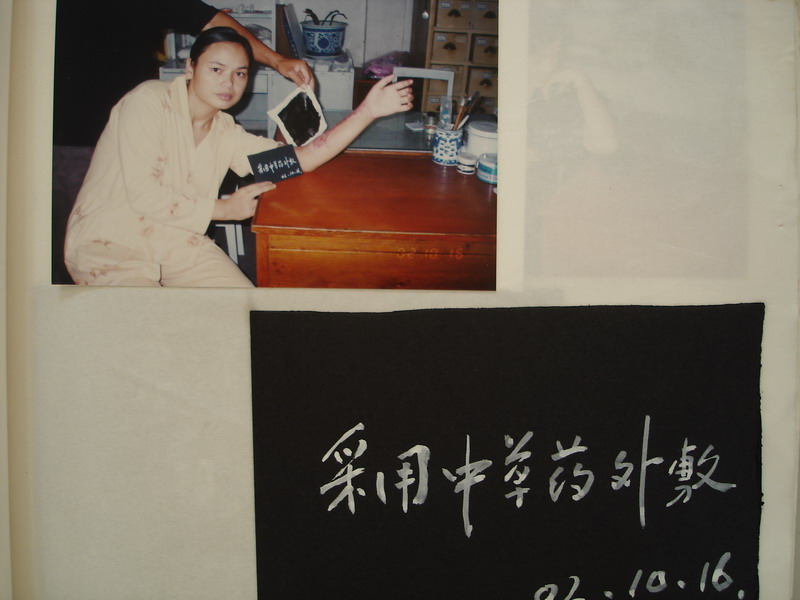 采用中草药外敷
02.10.16
02 10 16
采用中草药外敷
02.10.16.